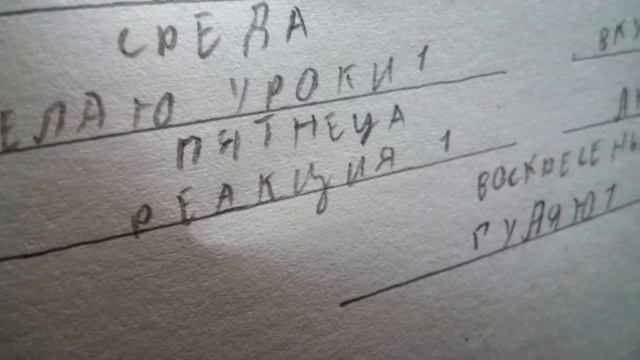 СРЕДА
ЕЛАЮ УРОКИ 1
ПЯТНЕЦА
РЕАКЦИЯ 1
ВКУ
ВОСКРЕСЕНЬ
ГУЛЯЮ 1